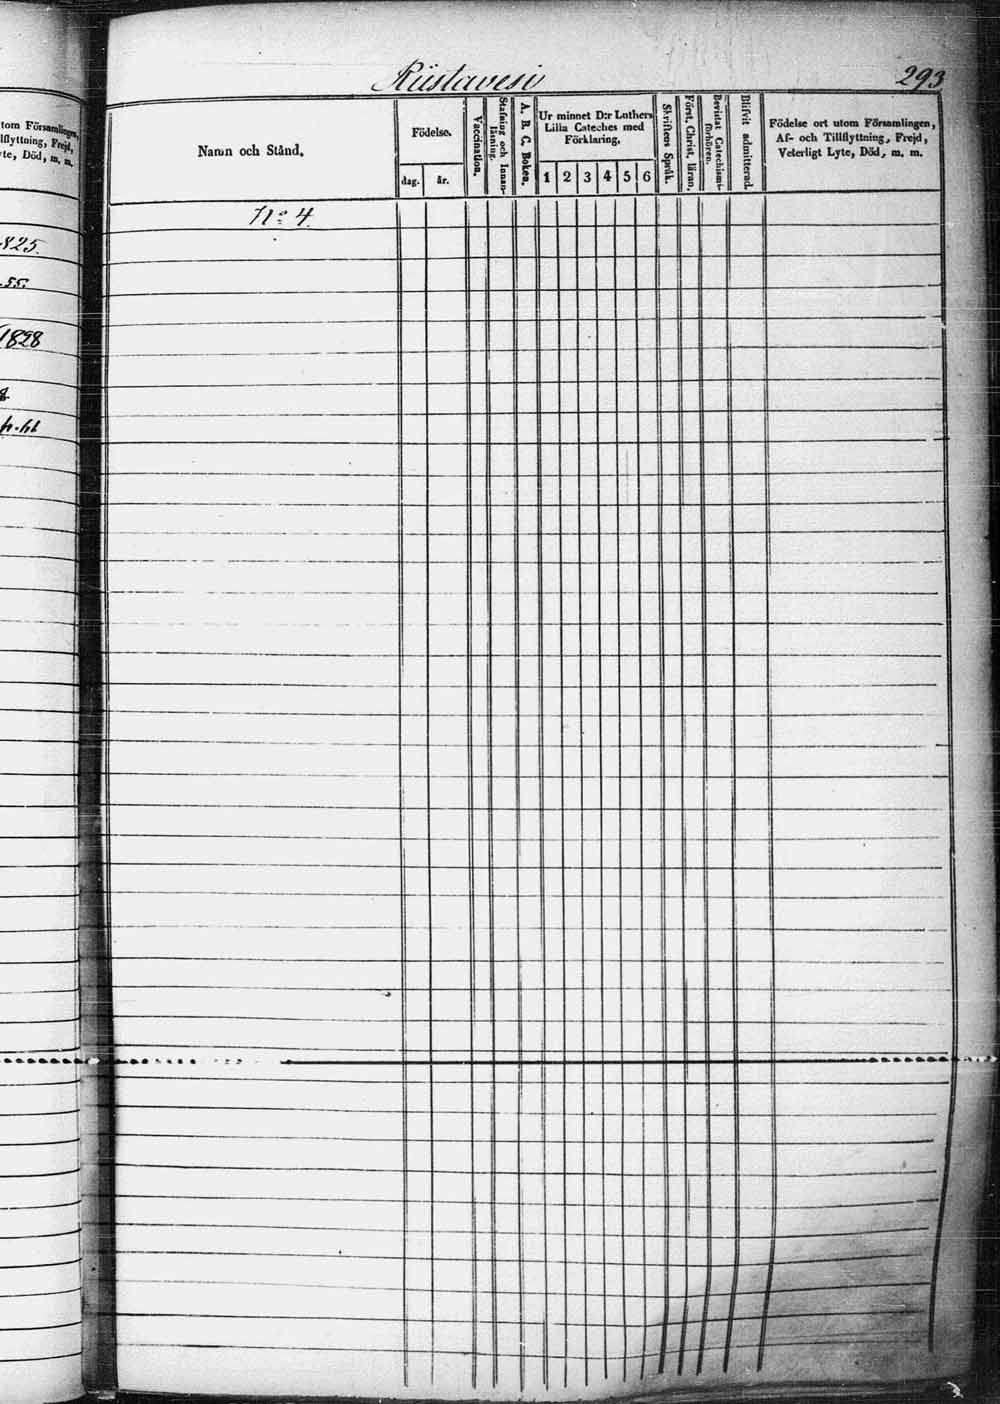 Riistavesi 293
tom Församlingen,
llflyttning, Frejd,
te, Död, m. m.
Namn och Stånd.
Födelse.
dag. år.
Vaccination.
Stafning och Innan-
läsning.
A. B. C. Boken.
Ur minnet D:r Luthers
Lilla Cateches med
Förklaring.
1 2 3 4 5 6
Skriftens Språk.
Först. Christ. läran.
Bevistat Catechismi-
förhören.
Blifvit admitterad.
Födelse ort utom Församlingen,
Af- och Tillflyttning, Frejd,
Veterligt Lyte, Död, m. m.
No 4.
825.
55.
1828